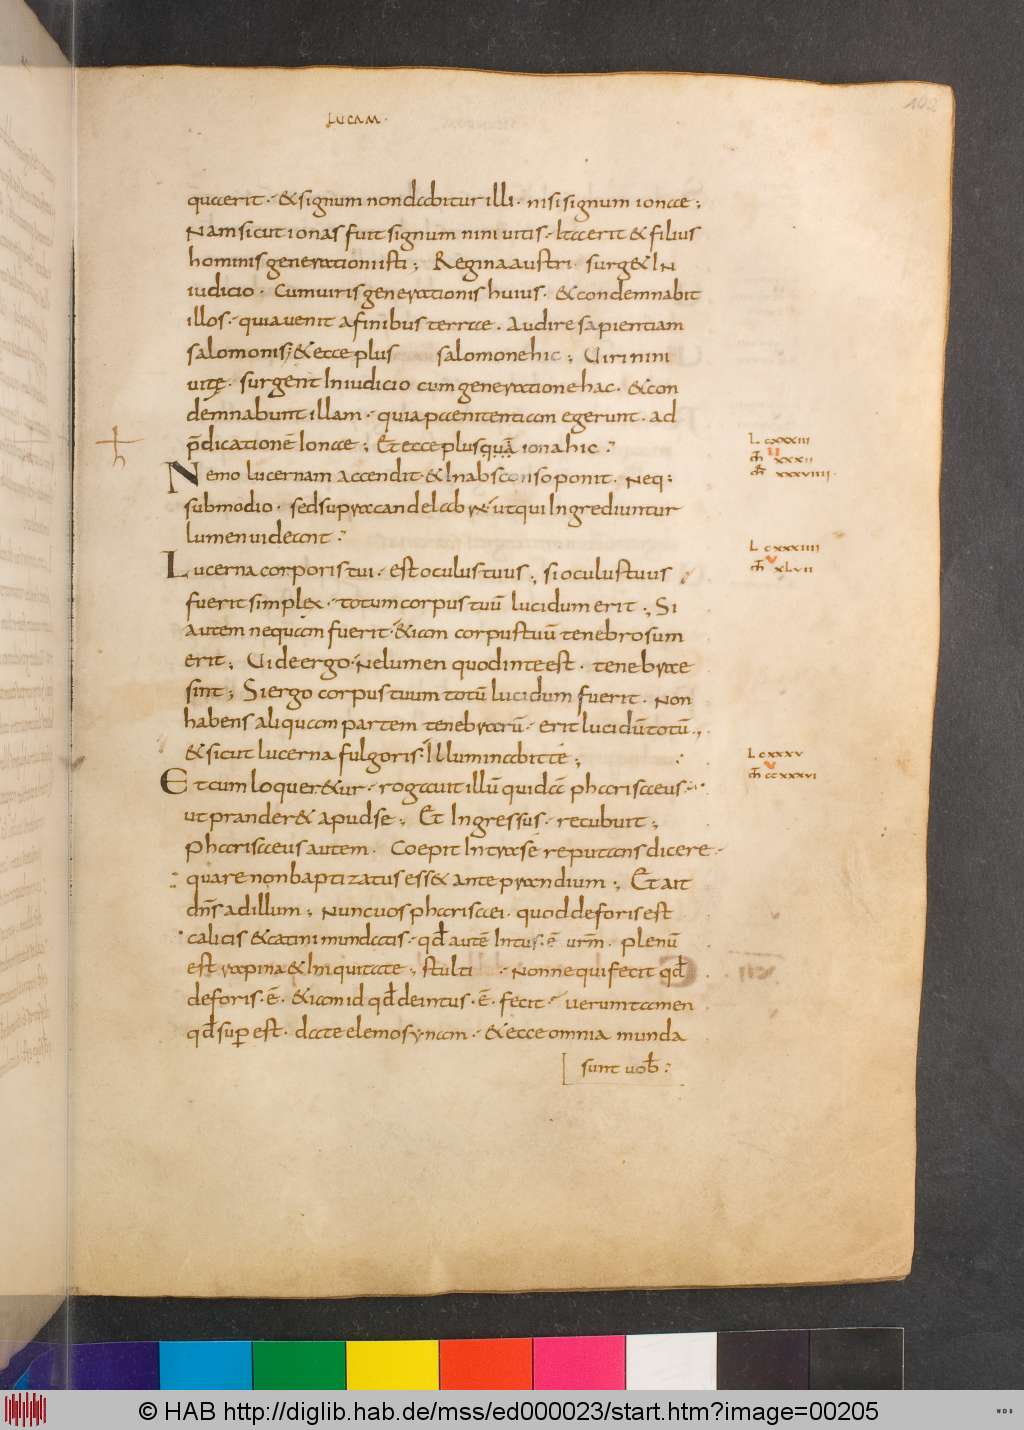 LUCAM·
102
quaerit· & signum non dabitur illi· nisi signum ionae;
Nam sicut ionas fuit signum niniuitis· Ita erit & filius
hominis generationi isti; Regina austri· surg& In
iudicio· Cum uiris generationis huius· & condemnabit
illos· quia uenit a finibus terrae. Audire sapientiam
salomonis; & ecce plus salomone hic; Uiri nini
uitę· surgent In iudicio cum generatione hac· & con
demnabunt illam· quia paenitentiam egerunt· ad
p̄dicationē Ionae; Et ecce plus quā iona hic:
L cxxxiii
Nemo lucernam accendit & In absconso ponit· Neq;
sub modio· sed supra candelabra· ut qui Ingrediuntur
lumen uideant:
L cxxxiiii
xlvii
Lucerna corporis tui· est oculus tuus; si oculus tuus
fuerit simplex· totum corpus tuū lucidum erit; Si
autem nequam fuerit· &iam corpus tuū tenebrosum
erit; Uide ergo· Ne lumen quod in te est· tenebrae
sint; Si ergo corpus tuum totū lucidum fuerit· Non
habens aliquam partem tenebrarū· erit lucidū totū;
& sicut lucerna fulgoris· Illuminabit te;
L cxxxv
ccxxxvi
Et cum loquer&ur· rogauit illū quidā pharisaeus·
ut prander& apud se; Et Ingressus· recubuit;
Pharisaeus autem· Coepit Intra se reputans dicere·
quare non baptizatus ess& ante prandium; Et ait
dn̄s ad illum; Nunc uos pharisaei· quod deforis est
calicis & catini mundatis· qđ autē Intus· ē urm̄· plenū
est rapina & Iniquitate; stulti· Nonne qui fecit qđ
deforis· ē· &iam id qđ deintus· ē· fecit· uerumtamen
qđ sup est· date elemosynam· & ecce omnia munda
sunt uob:
© HAB http://diglib.hab.de/mss/ed000023/start.htm?image=00205